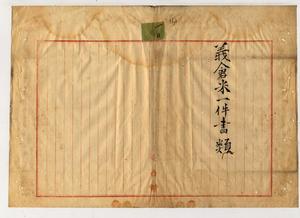 義倉米一件書類